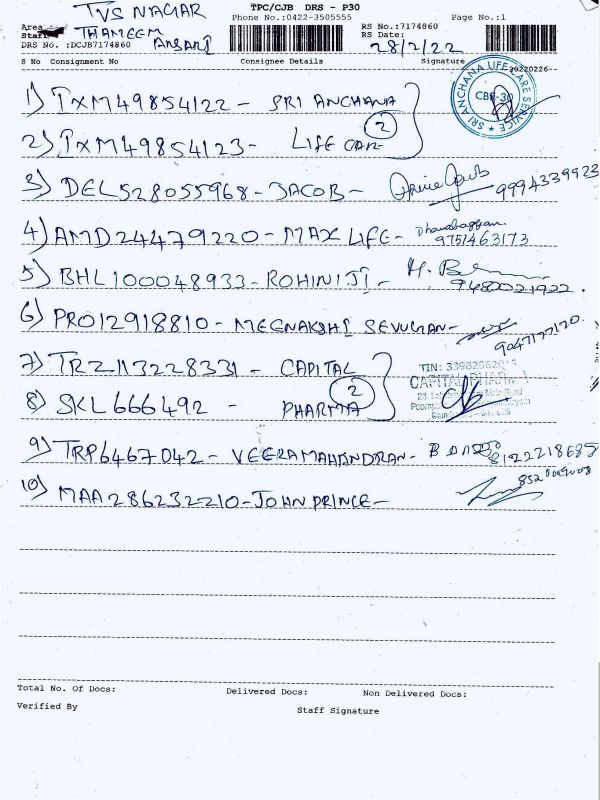 TPC/CJB DRS - P30
TVS NAGAR
Phone No.:0422-3505555
Page No.:1
Area
Staff
THAMEEM ANSARI
RS No.:7174860
RS Date:
28/2/22
DRS No. :DCJB7174860
S No Consignment No Consignee Details Signature
20220226
SRI ANCHANA LIFE CARE SERVICE
CBE-30
1) TXM49854122 - SRI ANCHANA
2) TXM49854123 - LIFE CAR 2
3) DEL528055968 - JACOB - 9994339923
4) AMD24479220 - MAX LIFE - 9751463173
5) BHL100048933 - ROHINI JI - 9480021922.
6) PRO12918810 - MEENAKSHI SEVUGAN - 9047177120
7) TRZ113228331 - CAPITAL
8) SKL666492 - PHARMA 2
TIN: 3398206
CAPITAL PHARMA
9) TRP6467042 - VEERAMAHANDRAN - 8122218685
10) MAA286232210 - JOHN PRINCE -
Total No. Of Docs: Delivered Docs: Non Delivered Docs:
Verified By
Staff Signature